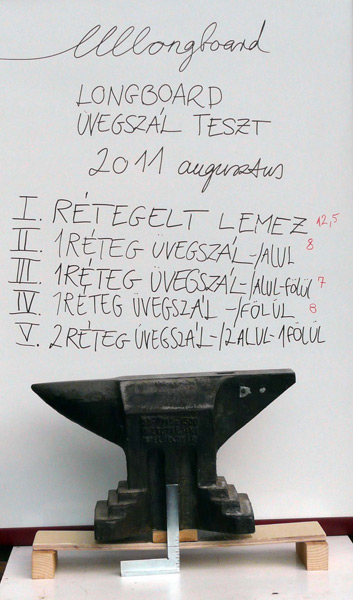 Ulllongboard
LONGBOARD
ÜVEGSZÁL TESZT
2011 augusztus
I. RÉTEGELT LEMEZ 12,5
II. 1RÉTEG ÜVEGSZÁL-/ALUL 8
III. 1RÉTEG ÜVEGSZÁL-/ALUL-FÖLÜL 7
IV. 1RÉTEG ÜVEGSZÁL -/FÖLÜL 8
V. 2RÉTEG ÜVEGSZÁL-/2ALUL-1FÖLÜL